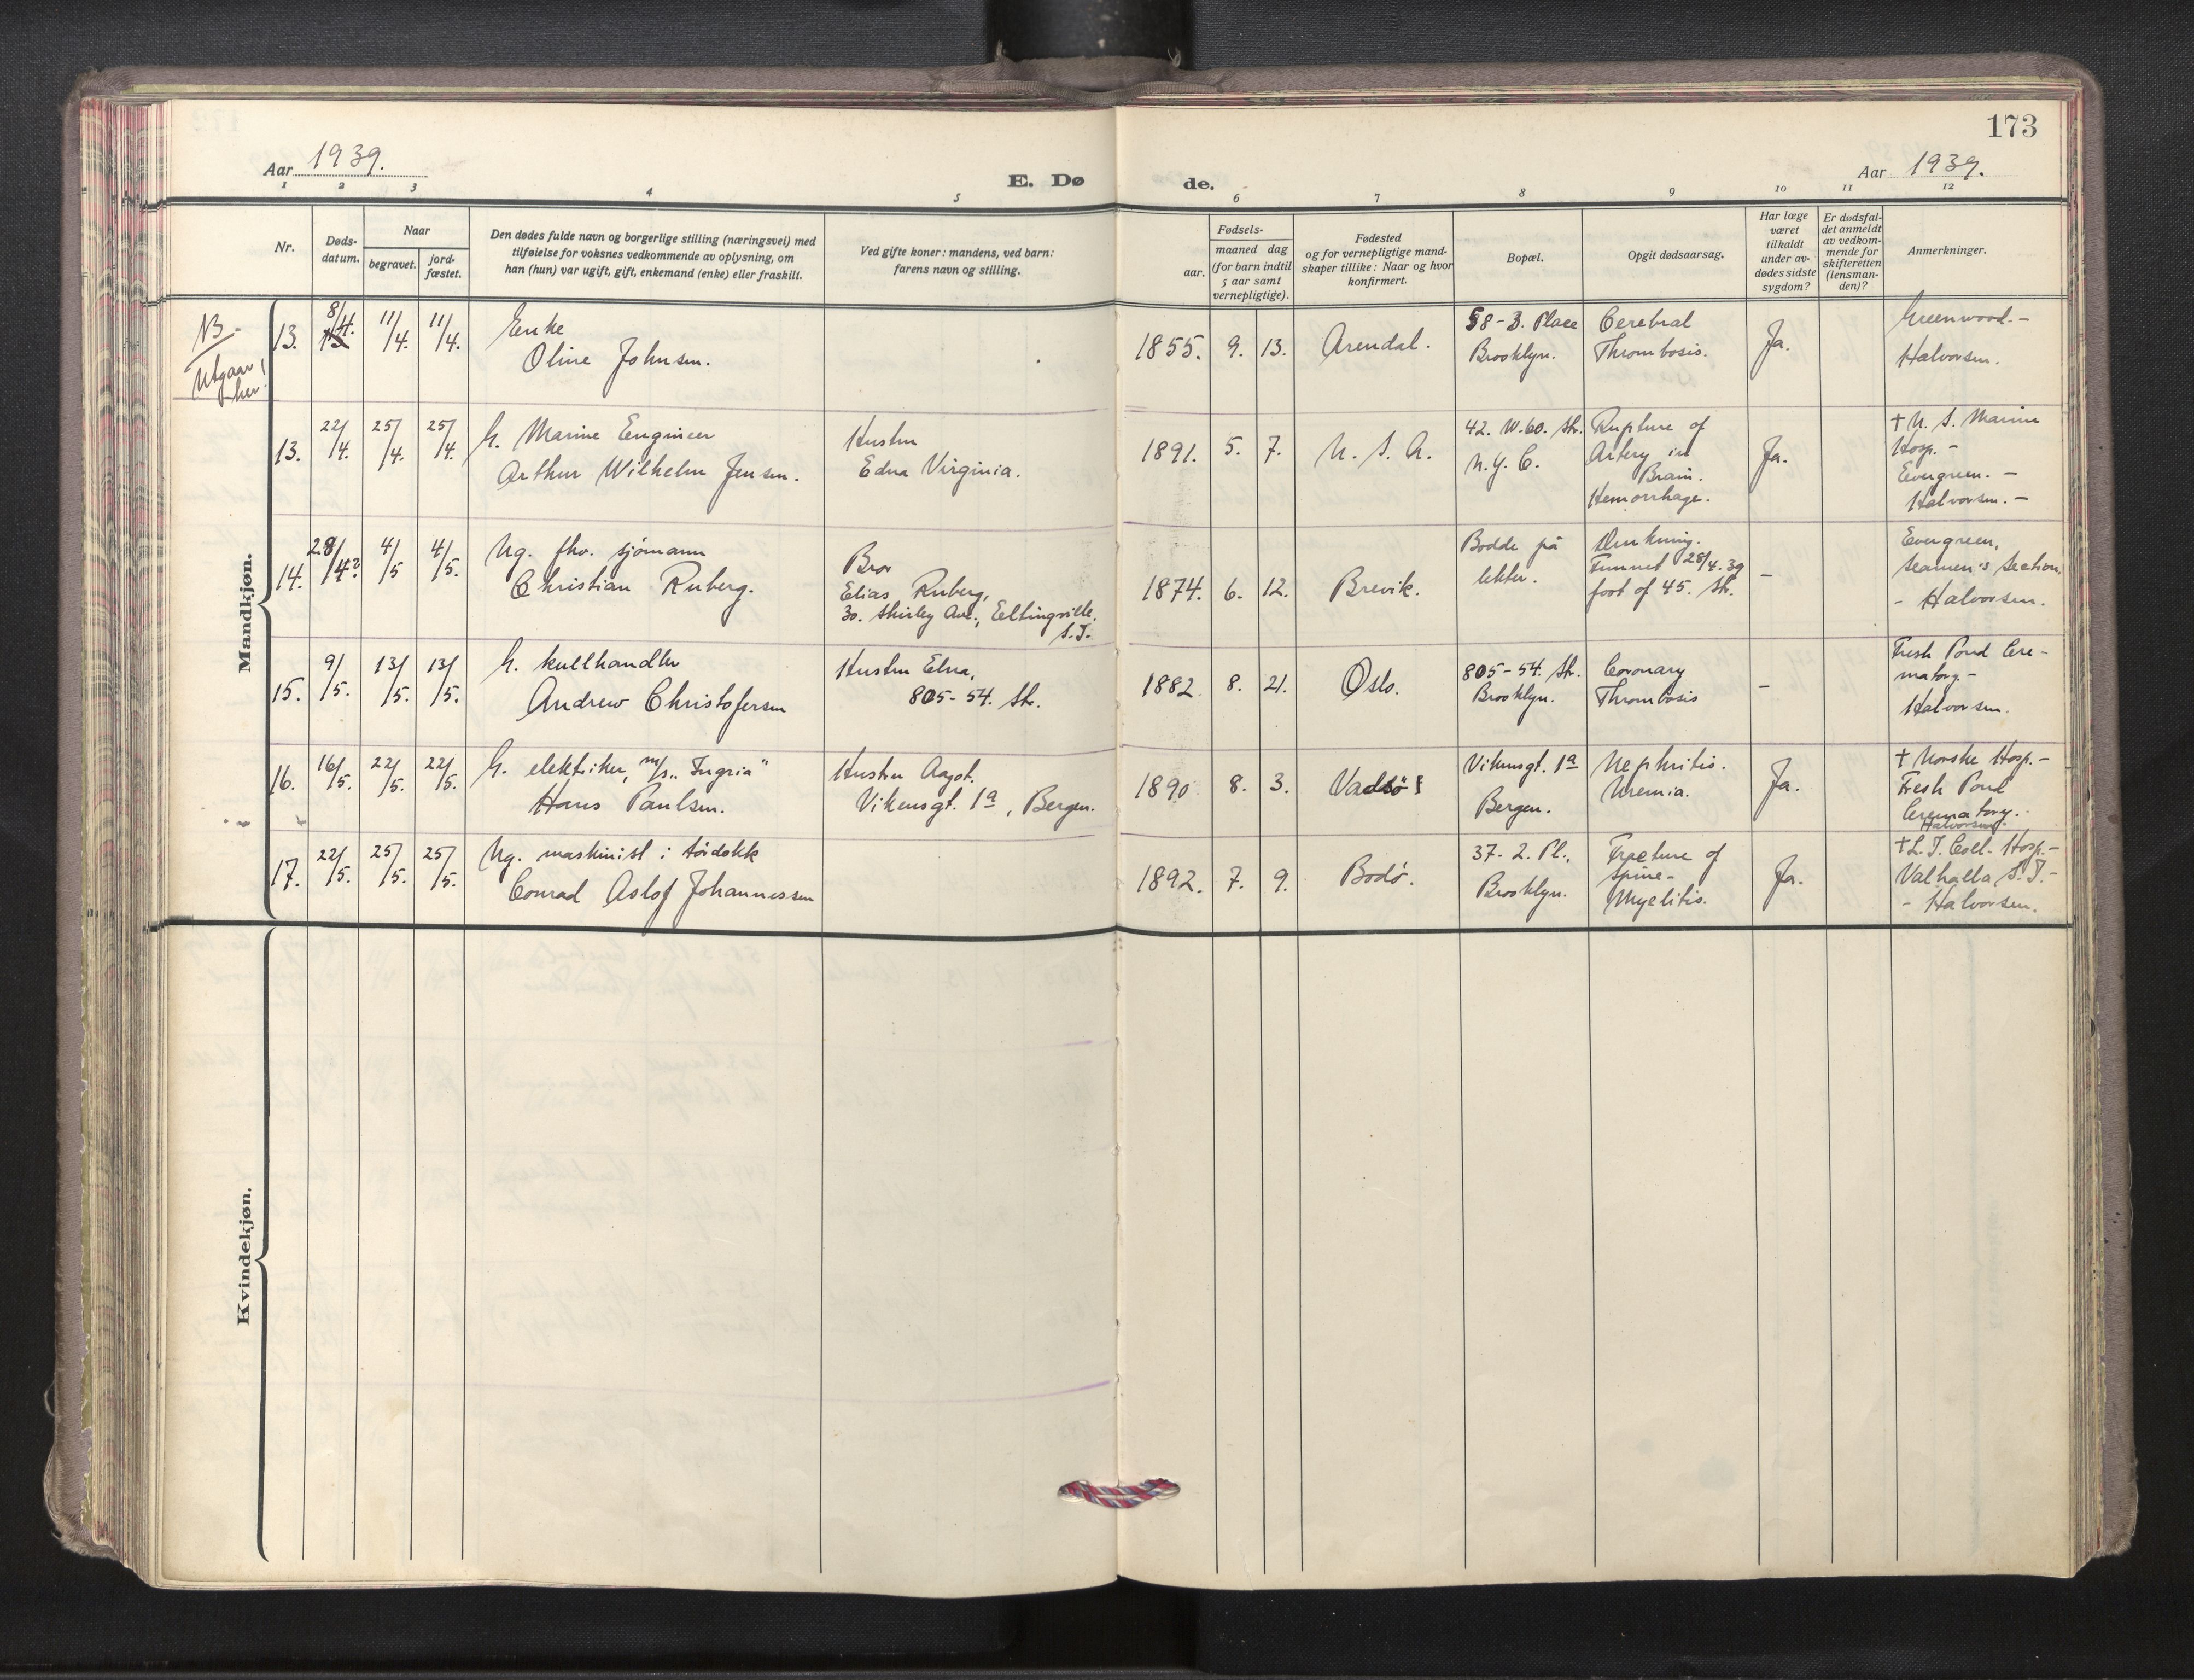 173
Aar 1939.
E. Dø
de.
Aar 1939.
1 2 3 4 5 6 7 8 9 10 11 12
Nr.
Døds-
datum.
Naar
begravet.
jord-
fæstet.
Den dødes fulde navn og borgerlige stilling (næringsvei) med
tilføielse for voksnes vedkommende av oplysning, om
han (hun) var ugift, gift, enkemand (enke) eller fraskilt.
Ved gifte koner: mandens, ved barn:
farens navn og stilling.
Fødsels-
aar.
maaned dag
(for barn indtil
5 aar samt
vernepligtige).
Fødested
og for vernepligtige mand-
skaper tillike: Naar og hvor
konfirmert.
Bopæl.
Opgit dødsaarsag.
Har læge
været
tilkaldt
under av-
dødes sidste
sygdom?
Er dødsfal-
det anmeldt
av vedkom-
mende for
skifteretten
(lensman-
den)?
Anmerkninger.
Mandkjøn.
NB-
Utgaar
her!
13.
8/4.
11/4.
11/4.
Enke
Oline Johnsen.
1855.
9.
13.
Arendal.
58-3. Place
Brooklyn.
Cerebral
Thrombosis.
Ja.
Greenwood.-
Halvorsen.
13.
22/4.
25/4.
25/4.
G. Marine Engineer
Arthur Wilhelm Jensen.
Hustru
Edna Virginia.
1891.
5.
7.
U. S. A.
42. W. 60. Str.
N. Y. C.
Rupture of
Artery in
Brain.
Hemorrhage.
Ja.
† U. S. Marine
Hosp. -
Evergreen. -
Halvorsen. -
14.
28/4?
4/5
4/5.
Ug. fhv. sjømann
Christian Ruberg.
Bror
Elias Ruberg,
30. Shirley Ave., Eltingville.
S.I.
1874.
6.
12.
Brevik.
Bodde på
lekter.
Drukning.
Funnet 28/4.39
foot of 45. Str.
-
Evergreen,
Seamen's Section
- Halvorsen.
15.
9/5.
13/5.
13/5.
G. kullhandler
Andrew Christofersen
Hustru Elna,
805-54. Str.
1882
8.
21.
Oslo.
805-54. Str.
Brooklyn.
Coronary
Thrombosis
-
Fresh Pond Cre-
matory.-
Halvorsen.
16.
16/5.
22/5.
22/5.
G. elektriker, m/s. „Ingria"
Hans Paulsen.
Hustru Aagot.
Vikensgt. 1a, Bergen.
1890
8.
3.
Vadsö
Vikensgt. 1a
Bergen.
Nephritis.
Uremia.
Ja.
† Norske Hosp.-
Fresh Pond
Crematory.
Halvorsen.
17.
22/5.
25/5.
25/5.
Ug. maskinist i tördokk
Conrad Aslof Johannessen
1892.
7.
9.
Bodö.
37-2. Pl.,
Brooklyn.
Fracture of
Spine-
Myelitis.
Ja.
† L. I. Coll. Hosp.-
Valhalla S.I.-
- Halvorsen.
Kvindekjøn.